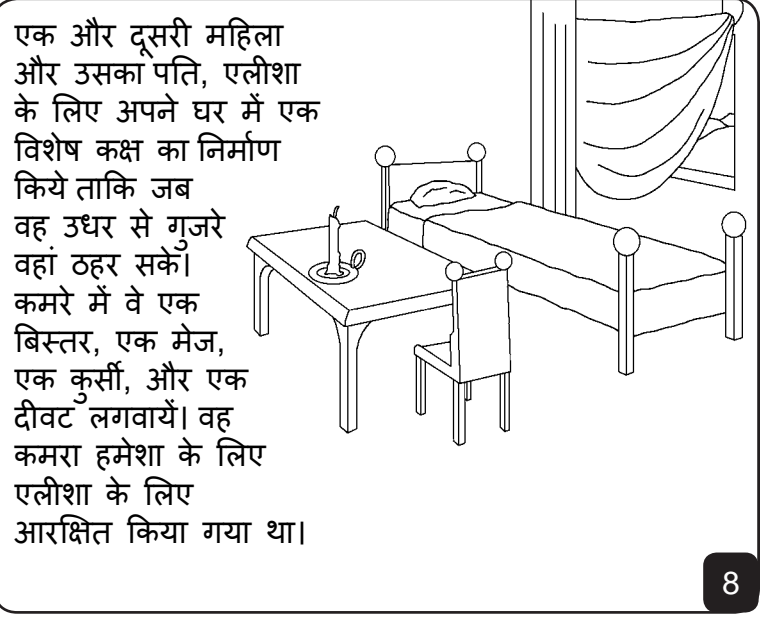 एक और दूसरी महिला
और उसका पति, एलीशा
के लिए अपने घर में एक
विशेष कक्ष का निर्माण
किये ताकि जब
वह उधर से गुजरे
वहां ठहर सके।
कमरे में वे एक
बिस्तर, एक मेज,
एक कुर्सी, और एक
दीवट लगवायें। वह
कमरा हमेशा के लिए
एलीशा के लिए
आरक्षित किया गया था।
8